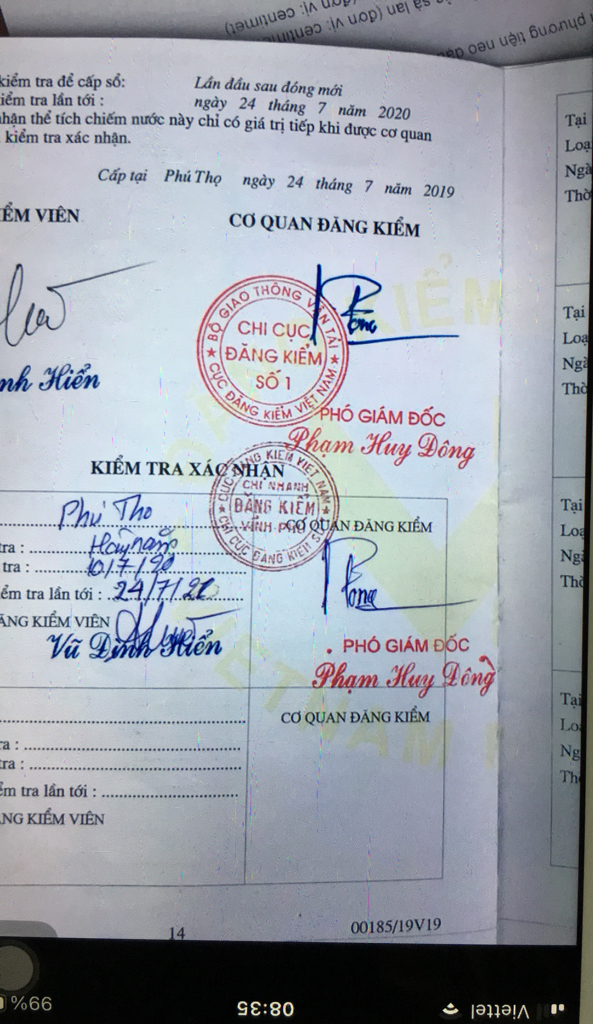 sà lan (đơn vị: centimet)
phương tiện neo đậu
kiểm tra để cấp sổ: Lần đầu sau đóng mới
kiểm tra lần tới : ngày 24 tháng 7 năm 2020
nhận thể tích chiếm nước này chỉ có giá trị tiếp khi được cơ quan
kiểm tra xác nhận.
Cấp tại Phú Thọ ngày 24 tháng 7 năm 2019
IỂM VIÊN
CƠ QUAN ĐĂNG KIỂM
BỘ GIAO THÔNG VẬN TẢI
CHI CỤC
ĐĂNG KIỂM
SỐ 1
CỤC ĐĂNG KIỂM VIỆT NAM
nh Hiển
PHÓ GIÁM ĐỐC
Phạm Huy Đông
KIỂM TRA XÁC NHẬN
CỤC ĐĂNG KIỂM VIỆT NAM
CHI NHÁNH
ĐĂNG KIỂM
VĨNH PHÚ
CHI CỤC ĐĂNG KIỂM SỐ 1
Phú Thọ
CƠ QUAN ĐĂNG KIỂM
tra : Hàng năm
tra : 10/7/20
ểm tra lần tới : 24/7/21
ĂNG KIỂM VIÊN
Vũ Đình Hiển
PHÓ GIÁM ĐỐC
Phạm Huy Đông
CƠ QUAN ĐĂNG KIỂM
ra :
tra :
ểm tra lần tới :
NG KIỂM VIÊN
14
00185/19V19
Tại
Loạ
Ngà
Thờ
Tại
Loạ
Ngà
Thờ
Tại
Loạ
Ngà
Thờ
Tại
Loạ
Ngà
Thờ
ĐĂNG KIỂM
VIETNAM
99%
08:35
Viettel